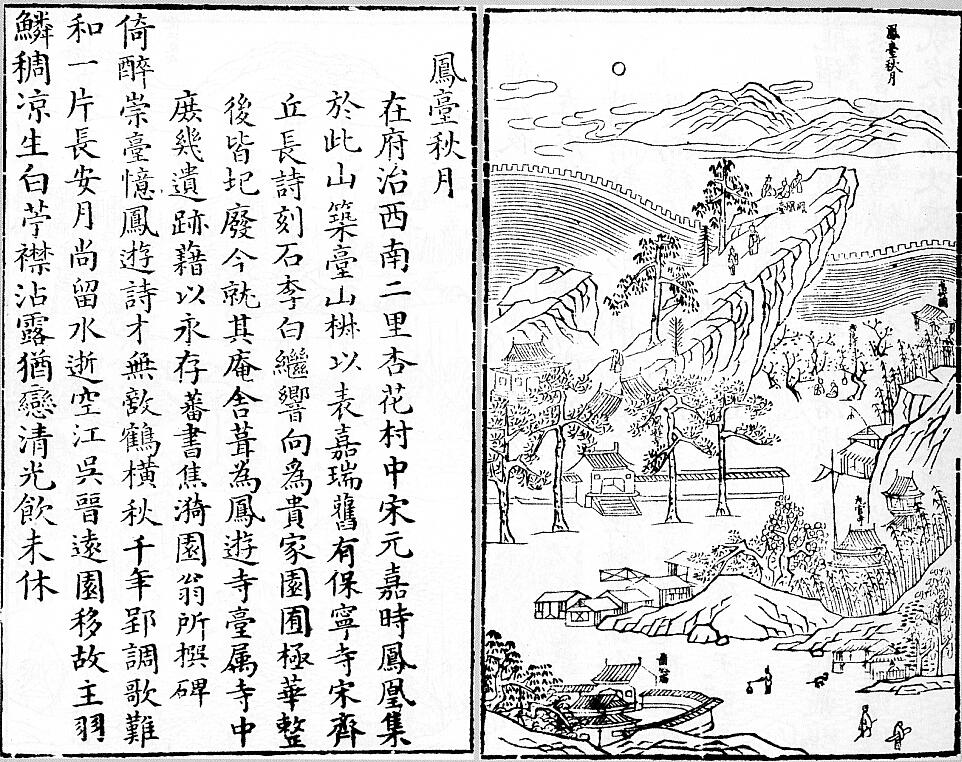 鳳臺秋月
鳳臺秋月
在府治西南二里杏花村中宋元嘉時鳳凰集
於此山築臺山椒以表嘉瑞舊有保寧寺宋齊
丘長詩刻石李白繼響向爲貴家園囿極華整
後皆圮廢今就其庵舍葺為鳳遊寺臺属寺中
庶幾遺跡藉以永存蕃書焦漪園翁所撰碑
倚醉崇臺憶鳳遊詩才無敵鶴橫秋千年郢調歌難
和一片長安月尚留水逝空江吳晉遠園移故主羽
鱗稠凉生白苧襟沾露猶戀清光飲未休